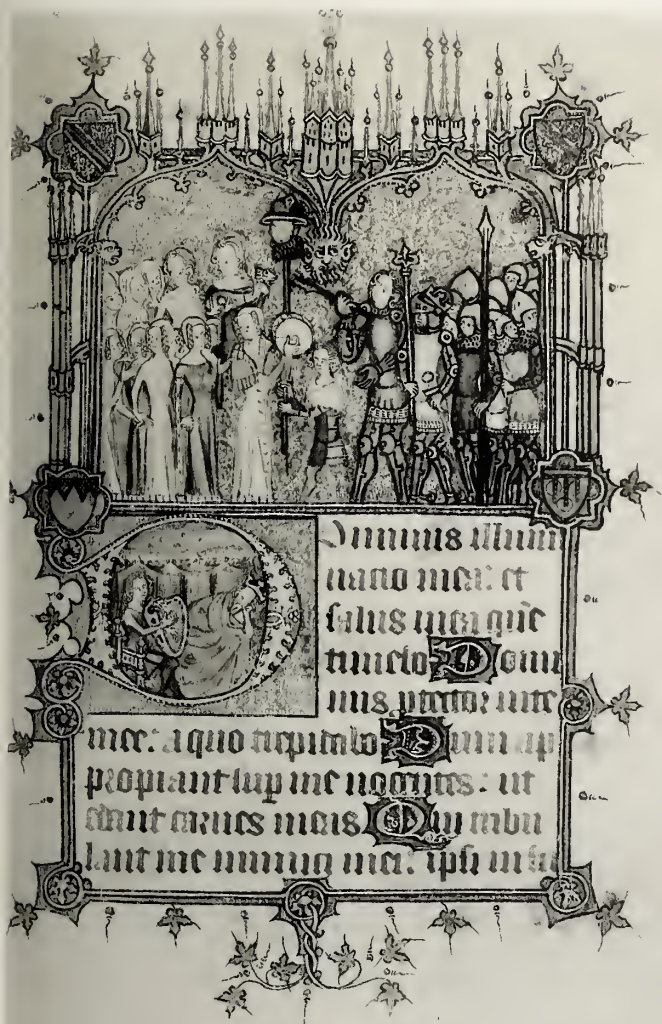 Dominus illumi
natio mea: et
salus mea quē
timebo Domi
nus ptector uite
mee: a quo trepidabo Dum ap
propiant sup me nocentes: ut
edant carnes meas Qui tribu
lant me inimici mei: ipsi